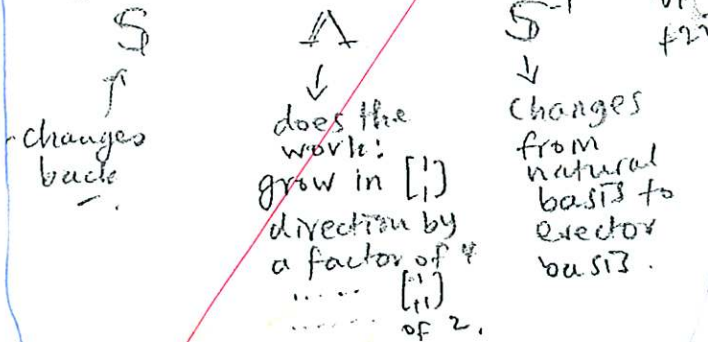 S Λ S⁻¹
changes
back
does the
work:
grow in [1 1]
direction by
a factor of 4
...... [ ]
...... of 2.
changes
from
natural
basis to
evector
basis.